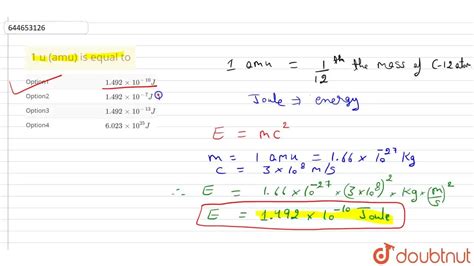 644653126
1 u (amu) is equal to
Option1 1.492 × 10⁻¹⁰J
Option2 1.492 × 10⁻⁷J
Option3 1.492 × 10⁻¹³J
Option4 6.023 × 10²⁰J
1 amu = 1/12 th the mass of C-12 atom
Joule ⇒ energy
E = mc²
m = 1 amu = 1.66 × 10⁻²⁷ Kg
C = 3 × 10⁸ m/s
∴ E = 1.66 × 10⁻²⁷ × (3 × 10⁸)² × Kg × (m/s)²
E = 1.492 × 10⁻¹⁰ Joule
doubtnut